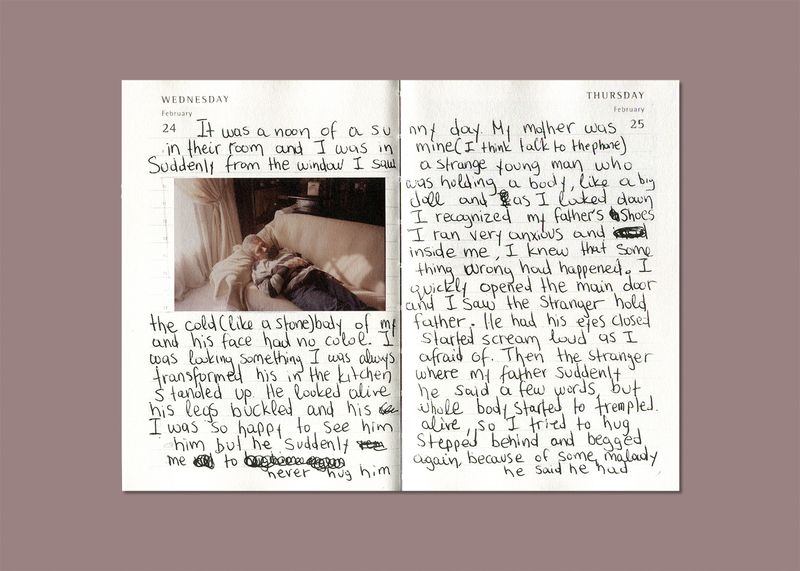 WEDNESDAY THURSDAY
February February
24 25
It was a noon of a sunny day. My mother was
in their room and I was in mine (I think talk to the phone)
Suddenly from the window I saw a strange young man who
was holding a body, like a big
doll and as I looked down
I recognized my father's shoes
I ran very anxious and
inside me, I knew that some
thing wrong had happened. I
quickly opened the main door
and I saw the stranger hold
the cold (like a stone) body of my father. He had his eyes closed
and his face had no color. I started scream loud as I
was looking something I was always afraid of. Then the stranger
transformed his in the kitchen where my father suddenly
standed up. He looked alive he said a few words, but
his legs buckled and his whole body started to trempled.
I was so happy to see him alive, so I tried to hug
him but he suddenly stepped behind and begged
me to never hug him again, because of some malady
he said he had